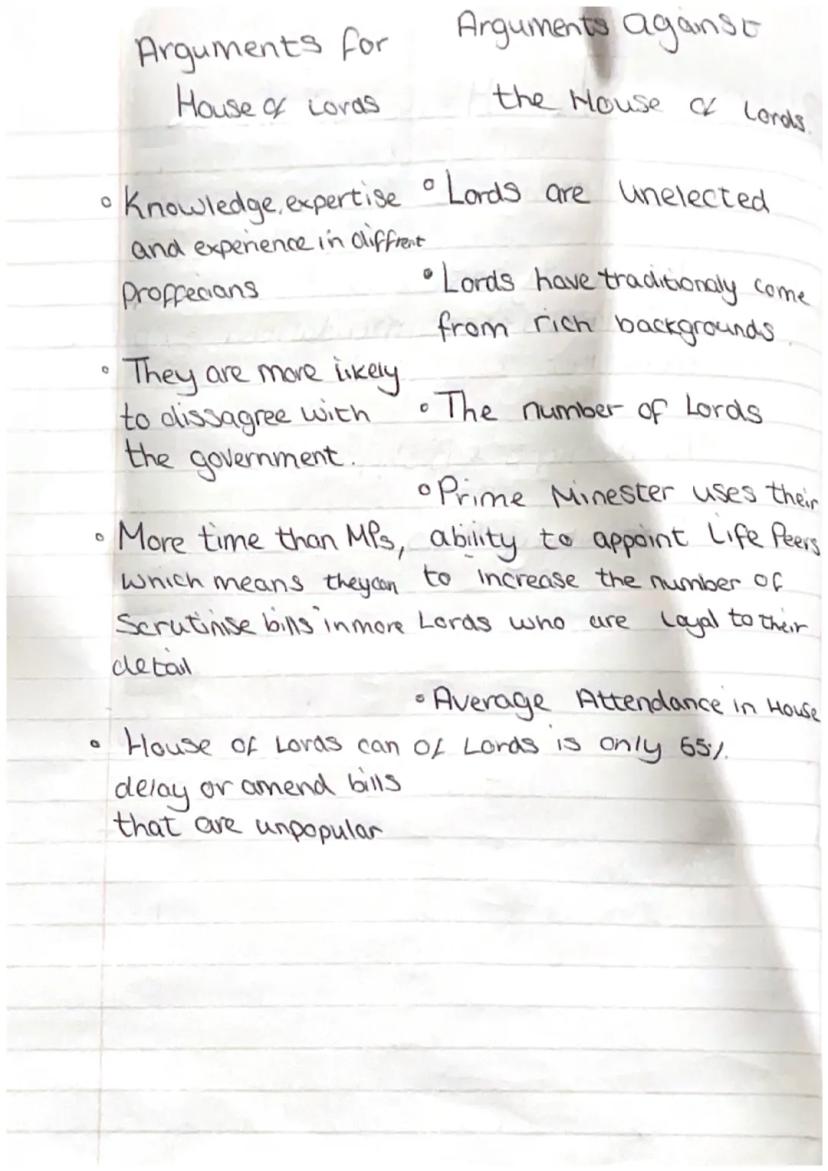 Arguments for
House of Lords
Knowledge, expertise
and experience in diffrent
Proffecians
They are more likely
to dissagree with
the government.
More time than MPs,
which means they can
Scrutinise bills in more
detail
House of Lords can
delay or amend bills
that are unpopular
Arguments against
the House of Lords.
Lords are unelected
Lords have traditionaly come
from rich backgrounds.
The number of Lords
Prime Minester uses their
ability to appoint Life Peers
to increase the number of
Lords who are loyal to their
Average Attendance in House
of Lords is only 65%.